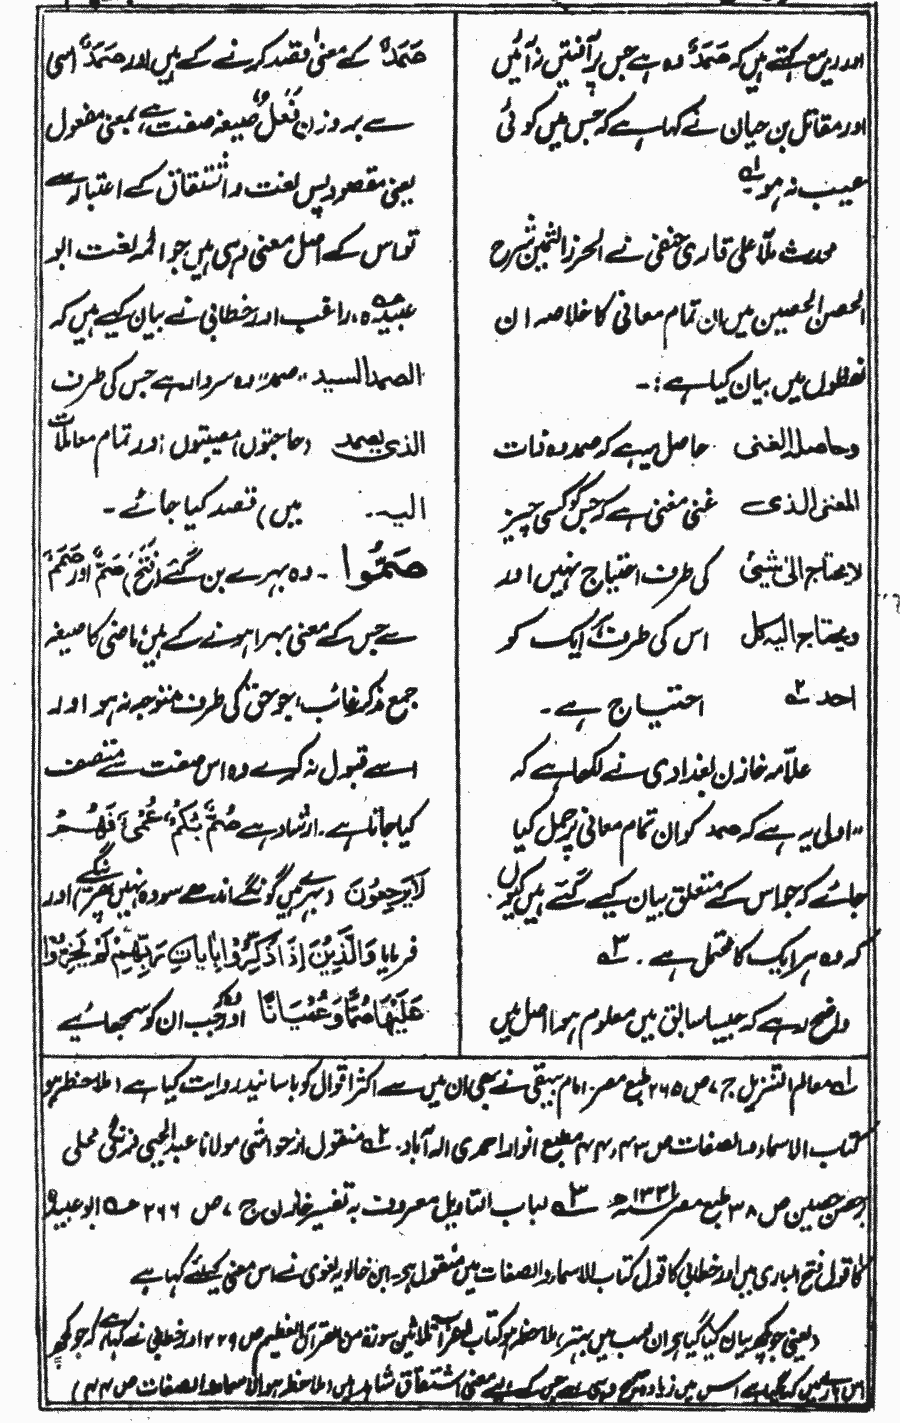 اور ربیع کہتے ہیں کہ صَمَدٌ وہ ہے جس پر آفتیں نہ آئیں
اور مقاتل بن حیان نے کہا ہے کہ جس میں کوئی
عیب نہ ہو۔
محدث ملّا علی قاری حنفی نے الحرز الثمین شرح
الحصن الحصین میں ان تمام معانی کا خلاصہ ان
لفظوں میں بیان کیا ہے:۔
وحاصلہ الغنی حاصل یہ ہے کہ صمد وہ ذات
المغنی الذی غنی مغنی ہے کہ جس کو کسی چیز
لا یحتاج الی شیئ کی طرف احتیاج نہیں اور
ویحتاج الیہ کل اس کی طرف ہر ایک کو
احد ۲ احتیاج ہے۔
علامہ خازن بغدادی نے لکھا ہے کہ
"اولی یہ ہے کہ صمد کو ان تمام معانی پر حمل کیا
جائے کہ جو اس کے متعلق بیان کیے گئے ہیں کیوں
کہ وہ ہر ایک کا محتمل ہے۔ ۳
واضح رہے کہ جیسا سابق میں معلوم ہوا اصل میں
صَمَدٌ کے معنی قصد کرنے کے ہیں اور صَمَدٌ اسی
سے بر وزن فَعَلٌ صیغہ صفت ہے، بمعنی مفعول
یعنی مقصود پس لغت و اشتقاق کے اعتبار سے
تو اس کے اصل معنی وہی ہیں جو ائمہ لغت ابو
عبیدہ، راغب اور خطابی نے بیان کیے ہیں کہ
الصمد السید "صمد" وہ سردار ہے جس کی طرف
الذی یصمد (حاجتوں، مصیبتوں اور تمام معاملات
الیہ۔ میں) قصد کیا جائے۔
صَمُّوا ۔ وہ بہرے بن گئے (فتح) صَمٌّ اور صَمَمٌ
سے جس کے معنی بہرا ہونے کے ہیں، ماضی کا صیغہ
جمع مذکر غائب، جو حق کی طرف متوجہ نہ ہو اور
اسے قبول نہ کرے وہ اس صفت سے متصف
کیا جاتا ہے۔ ارشاد ہے صُمٌّ بُکْمٌ عُمْیٌ فَہُمْ
لَا یَرْجِعُوْنَ (بہرے ہیں گونگے اندھے سو وہ نہیں پھریں گے) اور
فرمایا وَالَّذِیْنَ إِذَا ذُکِّرُوْا بِاٰیَاتِ رَبِّہِمْ لَمْ یَخِرُّوْا
عَلَیْہَا صُمًّا وَّعُمْیَانًا اور وہ کہ جب ان کو سمجھائیے
۱ معالم التنزیل ج ۷، ص ۲۶۵ طبع مصر۔ امام بیہقی نے بھی ان میں سے اکثر اقوال کو باسانید روایت کیا ہے (ملاحظہ ہو
کتاب الاسماء والصفات ص ۴۳، ۴۴ مطبع انوار احمدی الہ آباد۔ ۲ منقول از حواشی مولانا عبد الحی فرنگی محلی
بر حصن حصین ص ۳۸ طبع مصر ۱۳۲۱ھ ۳ لباب التاویل معروف بہ تفسیر خازن ج ۷، ص ۲۶۶ ابو عبیدہ
کا قول فتح الباری میں اور خطابی کا قول کتاب الاسماء والصفات میں منقول ہے۔ ابن خالویہ لغوی نے اس معنی کیلئے کہا ہے
(یعنی جو کچھ بیان کیا گیا ہے ان سب میں بہتر، ملاحظہ ہو کتاب اعراب ثلاثین سورۃ من القرآن العظیم ص ۲۲۹ اور خطابی نے کہا ہے کہ جو کچھ
اس بارے میں کہا گیا ہے اس میں زیادہ صحیح وہی ہے جس کے لیے معنی اشتقاق شاہد ہیں (ملاحظہ ہو الاسماء والصفات ص ۴۴)